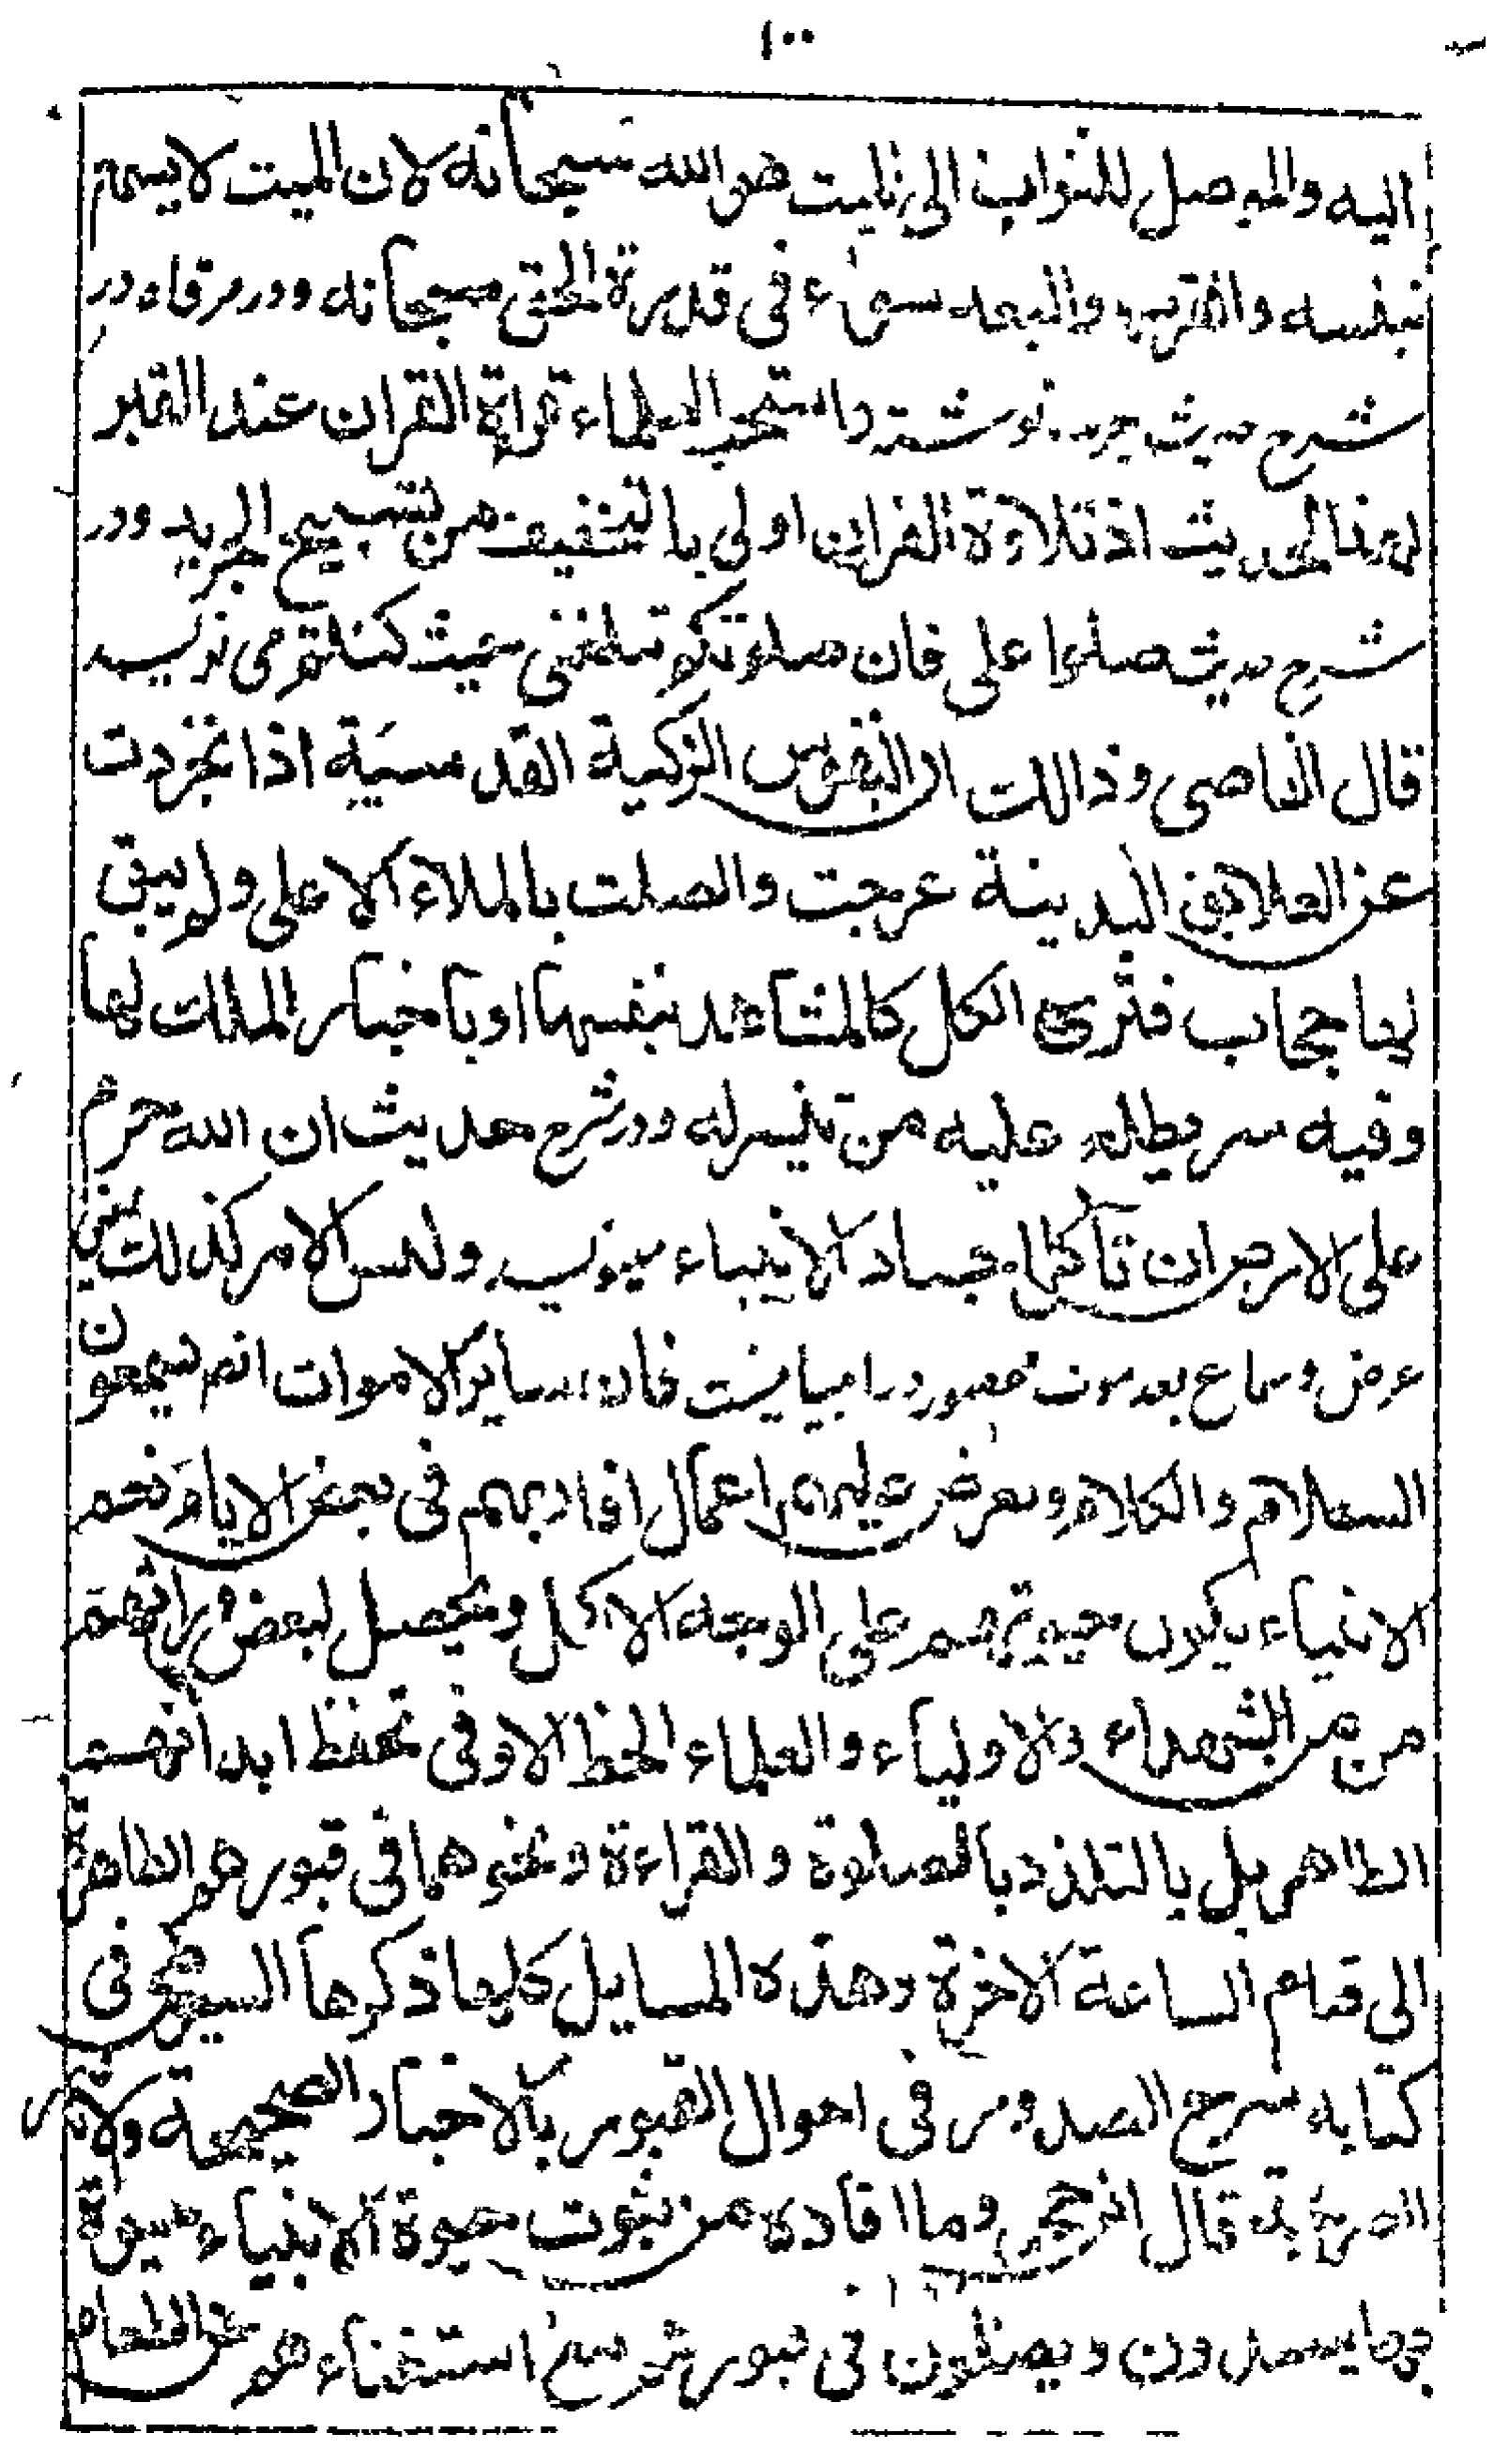 ١٠٠
اليه والموصل للثواب الى الميت هو الله سبحانه لان الميت لا يسمع
بنفسه والقرب والبعد سواء فى قدرة الحق سبحانه ودر مرقاه در
شرح حديث جريد نوشته واستحب العلماء قراءة القران عند القبر
لهذا الحديث اذ تلاوة القران اولى بالتخفيف من تسبيح الجريد ودر
شرح حديث صلوا على فان صلوتكم تبلغنى حيث كنتم مى نويسد
قال القاضى وذالك ان النفوس الزكية القدسية اذا تجردت
عن العلايق البدينة عرجت واتصلت بالملاء الاعلى ولم يبق
لها حجاب فترى الكل كالمشاهد بنفسها او باخبار الملك لها
وفيه سر يطلع عليه من تيسر له ودر شرح حديث ان الله حرم
على الارض ان تاكل اجساد الانبياء مينويسد وليس الامر كذلك يعنى
عرض وسماع بعد موت مخصوص در انبيا نيست فان سائر الاموات ايضا يسمعون
السلام والكلام ويعرض عليهم اعمال اقاربهم فى بعض الايام نعم
الانبياء يكون حيوتهم على الوجه الاكمل ويحصل لبعض وراثهم
من الشهداء والاولياء والعلماء الحظ الاوفى بحفظ ابدانهم
الظاهر بل بالتلذذ بالصلوة والقراءة ونحوهما فى قبورهم الطاهرة
الى قيام الساعة الاخرة وهذه المسايل كلها ذكرها السيوطى فى
كتابه شرح الصدور فى احوال القبور بالاخبار الصحيحة والاثار
الصريحة قال ابن حجر وما افاده من ثبوت حيوة الانبياء حيوة
بها يتعبدون ويصلون فى قبورهم مع استغناءهم عن الطعام